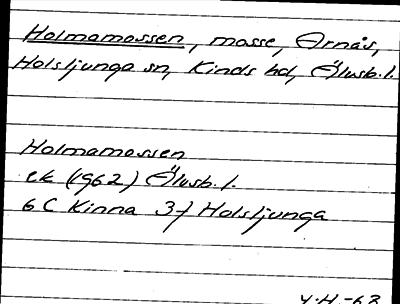 Holmamossen, mosse, Arnås,
Holsljunga sn, Kinds hd, Älvsb. l.
Holmamossen
ek (1962) Älvsb. l.
6 C Kinna 3f Holsljunga
Y.H. -68